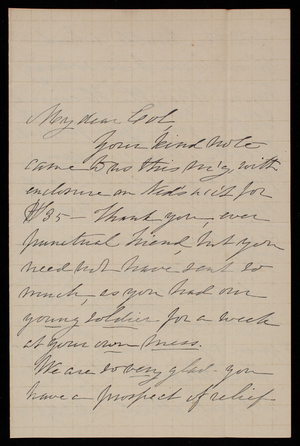 My dear Col,
Your kind note
came to us this m'g with
enclosure on Ned's ac't for
$35 — Thank you, ever
punctual friend, but you
need not have sent so
much, as you had our
young soldier for a week
at your own mess.
We are so very glad you
have a prospect of relief